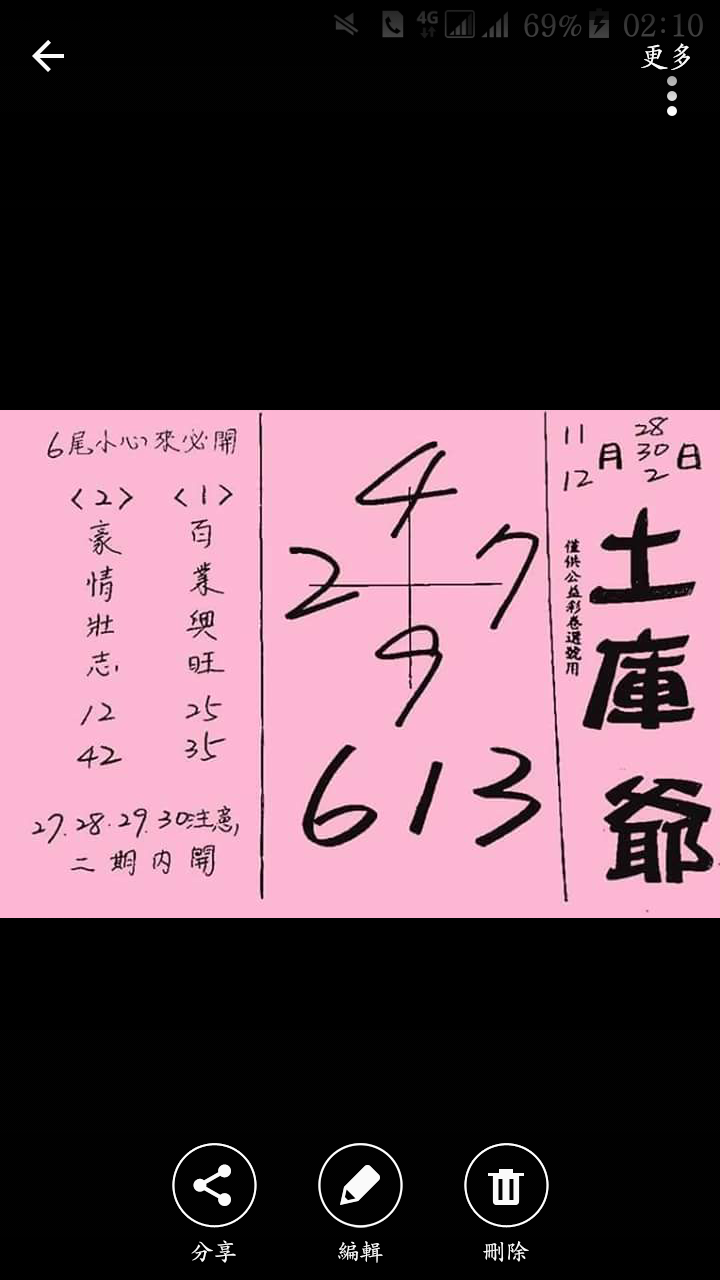 4G 69% 02:10
更多
11 28
月 30 日
12 2
土庫爺
僅供公益彩卷選號用
4
2 7
9
613
6尾小心來必開
<1>
百業興旺
25
35
<2>
豪情壯志
12
42
27.28.29.30注意,
二期内開
分享
編輯
刪除